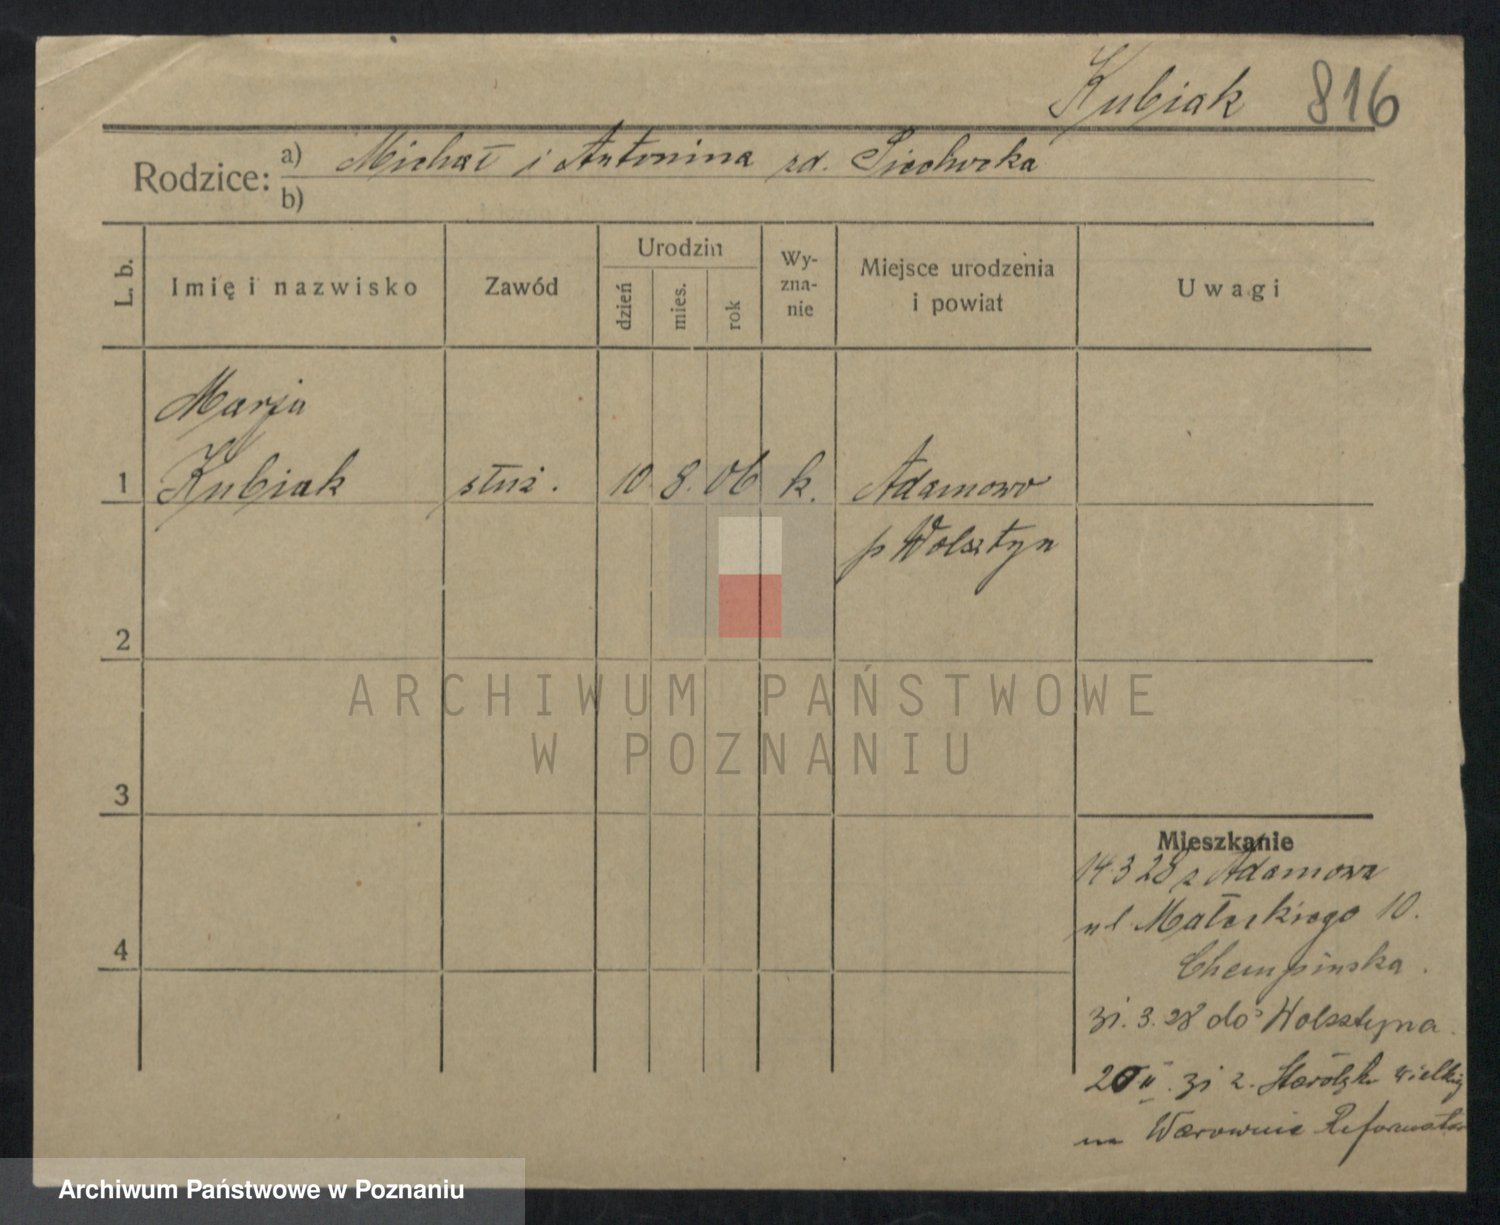 Kubiak 816
Rodzice: a) Michał i Antonina zd.
b)
L. b.
Imię i nazwisko
Zawód
Urodzin
dzień
mies.
rok
Wy-
zna-
nie
Miejsce urodzenia
i powiat
Uwagi
Marja
1 Kubiak służ. 10. 8. 06 k. Adamowo
p Wolsztyn
2
3
4
ARCHIWUM PAŃSTWOWE
W POZNANIU
Mieszkanie
14.3 28 z Adamowa
ul Małeckiego 10.
Chempinska.
31. 3. 28 do Wolsztyna.
20 II. 31 z. Starołęka Wielkiej
na Warownie Reformatów
Archiwum Państwowe w Poznaniu